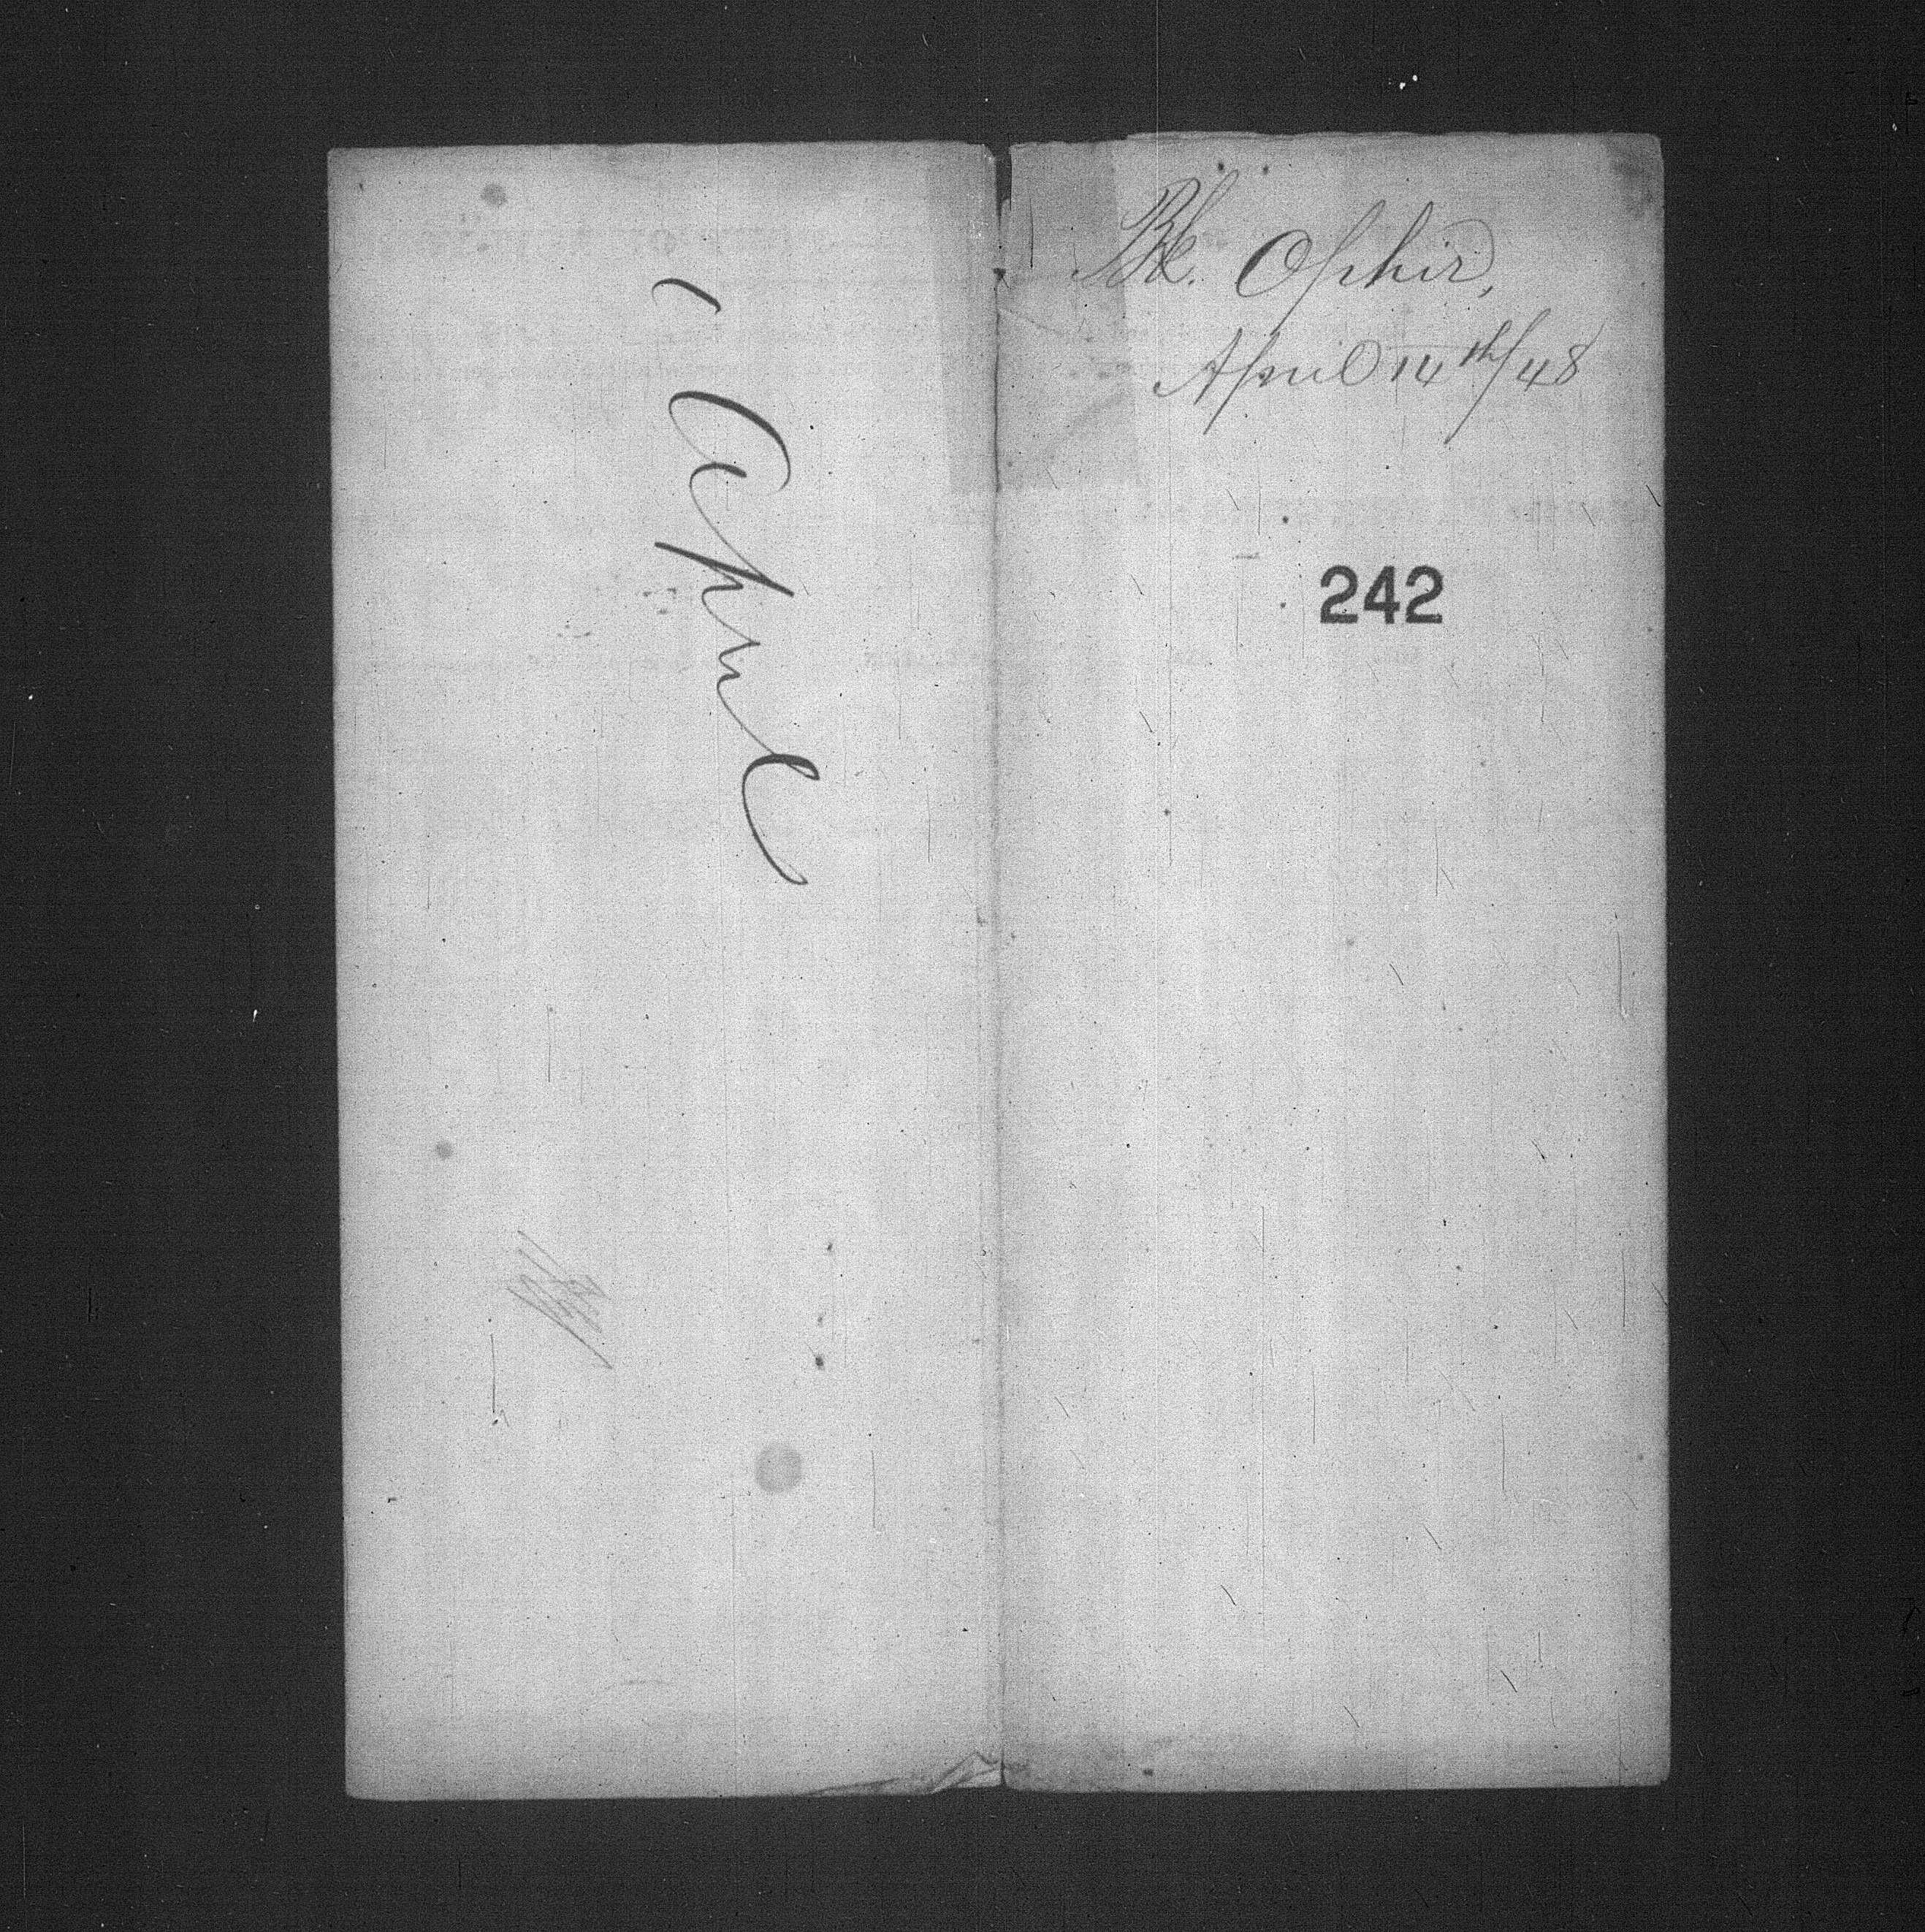 April
Bk. Ophir,
April 14th/48
242